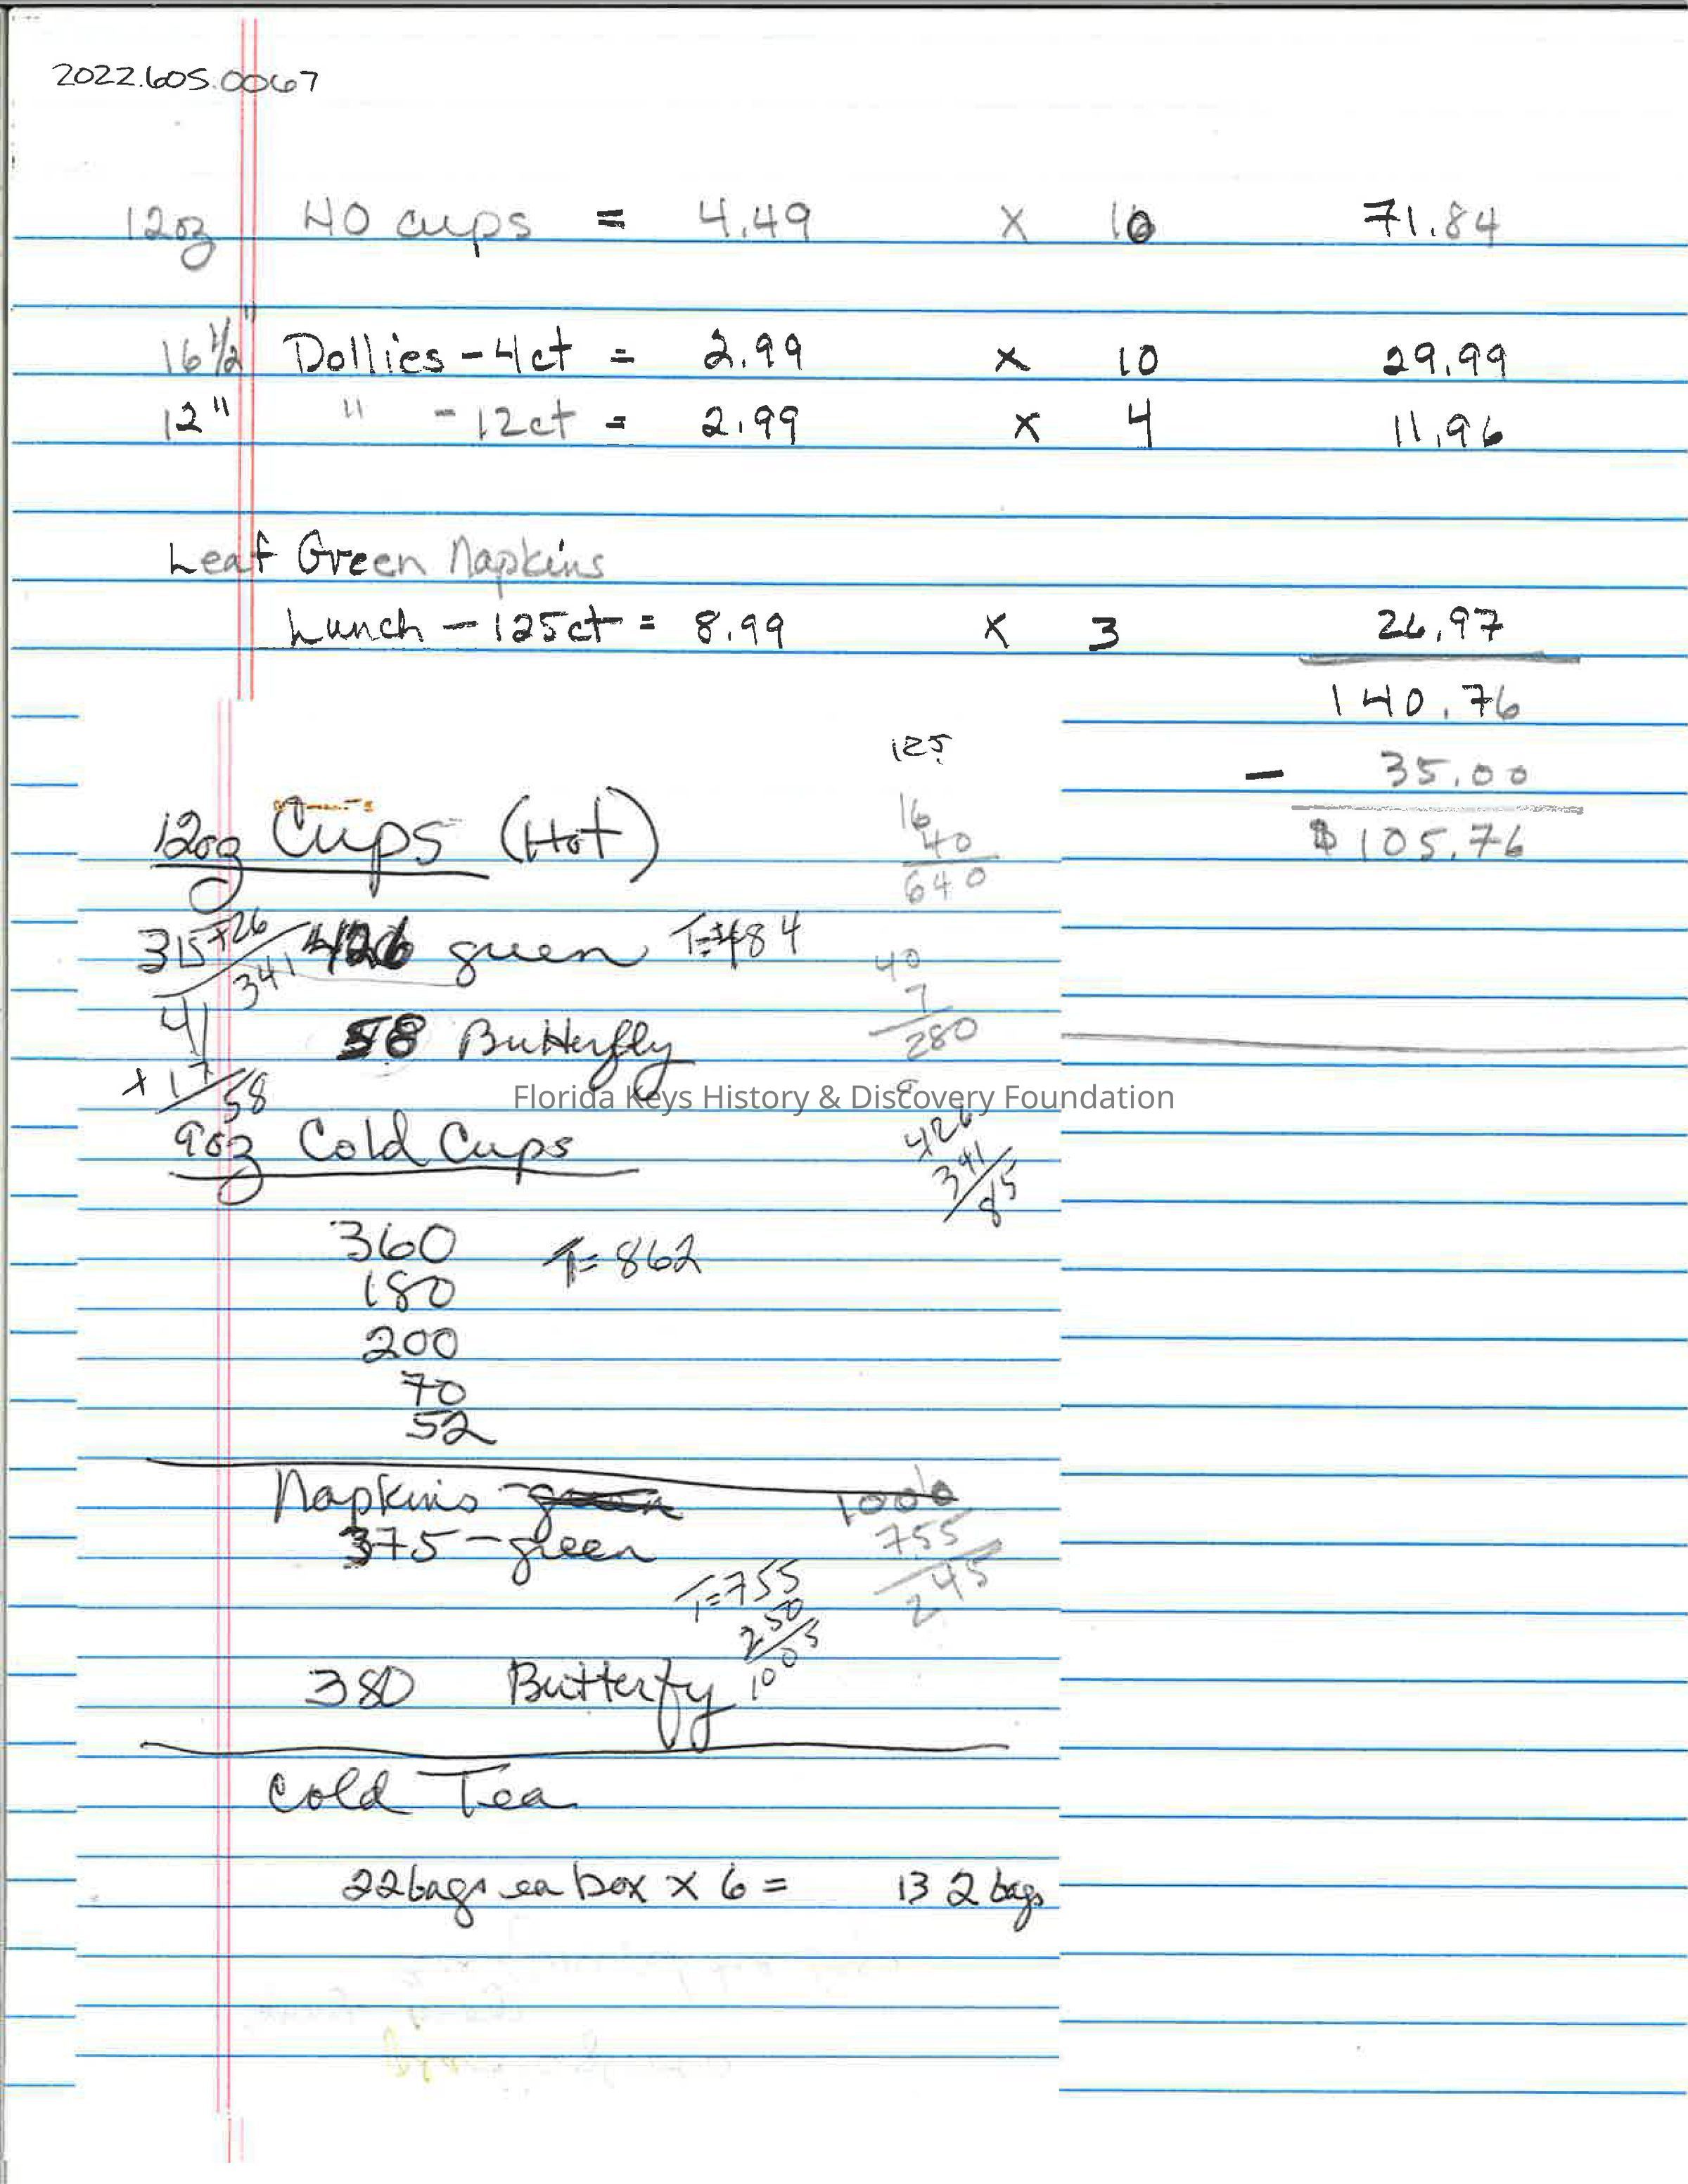 2022.605.0067
12oz 40 cups = 4.49 x 16 71.84
16 1/2" Dollies - 4ct = 2.99 x 10 29.99
12" " - 12ct = 2.99 x 4 11.96
Leaf Green Napkins
Lunch - 125ct = 8.99 x 3 26.97
140.76
- 35.00
$105.76
125
16
40
640
12oz Cups (Hot)
315 + 26
341
426 green T=484
40
7
280
41
+ 17
58
58 Butterfly
Florida Keys History & Discovery Foundation
426
341
85
9oz Cold Cups
360 T= 862
180
200
70
52
Napkins - green
375 - green
1000
755
245
T=755
250
1005
380 Butterfy
Cold Tea
22 bags ea box x 6 = 132 bags